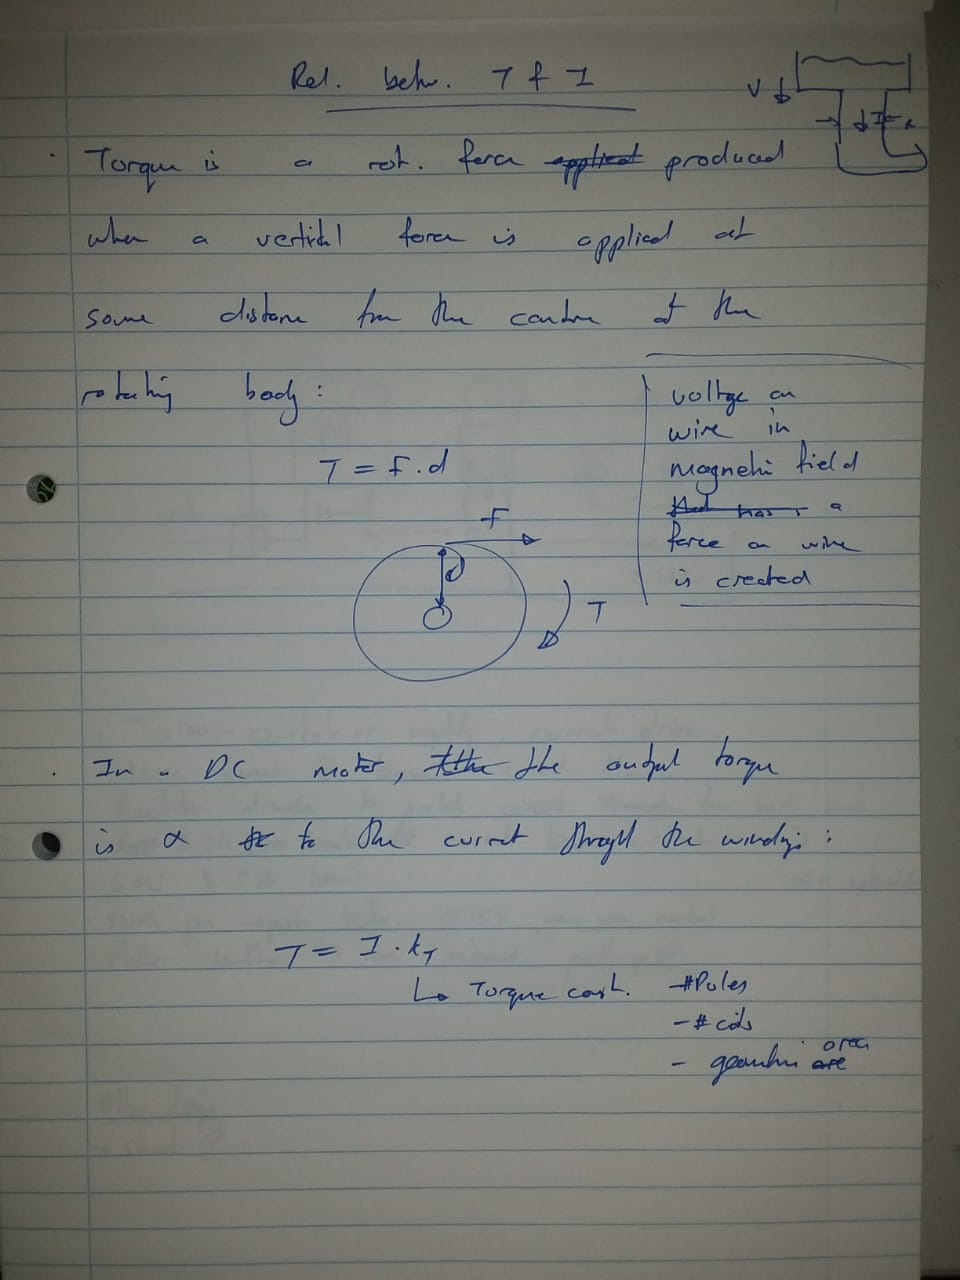 Rel. betw. T & I
V
I
R
Torque is a rot. force applied produced
when a vertical force is applied at
some distance from the centre of the
rotating body:
T = F.d
F
d
T
voltage on
wire in
magnetic field
has a
force on wire
is created
In a DC motor, the the output torque
is α to the current through the windings:
T = I.kT
↳ Torque const.
-#Poles
-# coils
- geometric are area